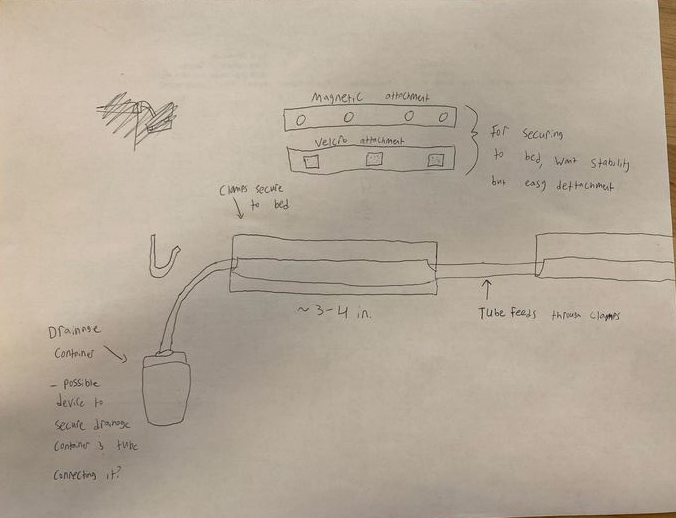 Magnetic attachment
Velcro attachment
For securing
to bed, want stability
but easy dettachment
Clamps secure
to bed
~ 3-4 in.
Tube feeds through clamps
Drainage
Container
- possible
device to
secure drainage
container & tube
connecting it?